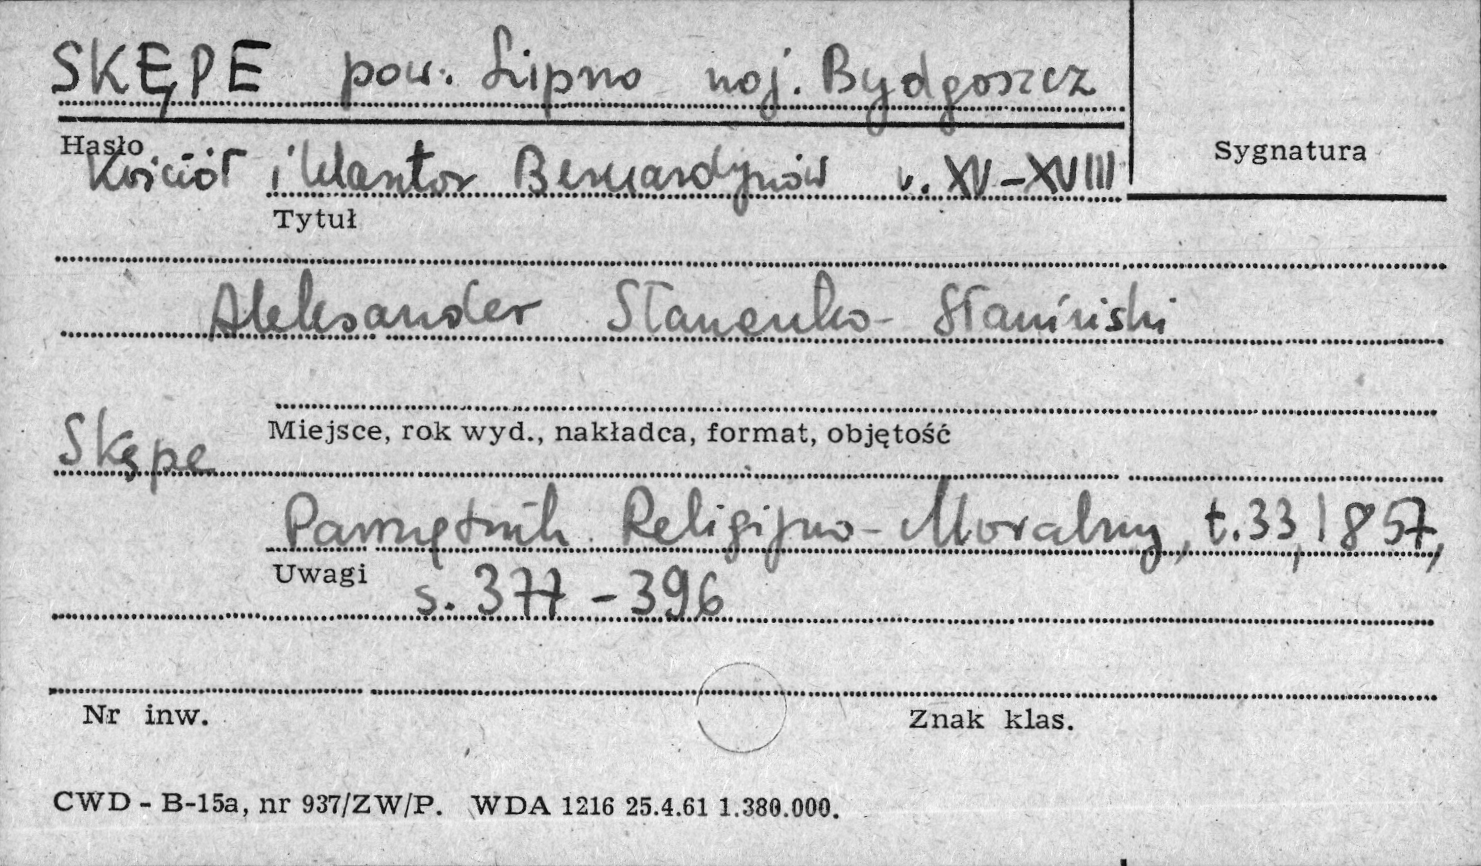 SKĘPE pow. Lipno woj. Bydgoszcz
Hasło
Sygnatura
Kościół i klasztor Bernardynów w. XV-XVIII
Tytuł
Aleksander Stanenko-Staniński
Miejsce, rok wyd., nakładca, format, objętość
Skępe
Pamiętnik Religijno-Moralny, t.33, 1857,
Uwagi
s. 377-396
Nr inw.
Znak klas.
CWD - B-15a, nr 937/ZW/P. WDA 1216 25.4.61 1.380.000.